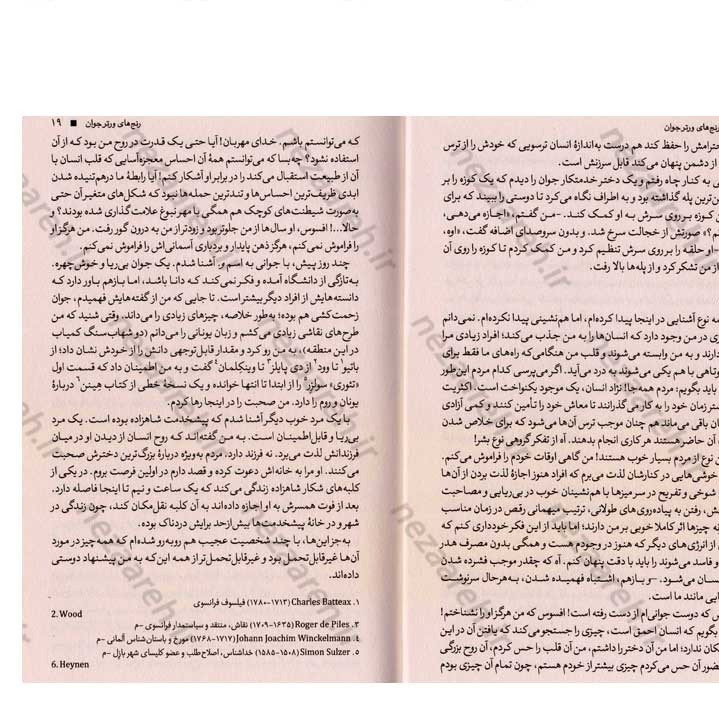 رنج‌های ورتر جوان
حترامش را حفظ کند هم درست به‌اندازهٔ انسان ترسویی که خودش را از ترس
از دشمن پنهان می‌کند قابل سرزنش است.
به کنار چاه رفتم و یک دختر خدمتکار جوان را دیدم که یک کوزه را بر
ن‌ترین پله گذاشته بود و به اطراف نگاه می‌کرد تا دوستی را ببیند که برای
کوزه بر روی سرش به او کمک کند. -من گفتم، «اجازه می‌دهی،
نم؟» صورتش از خجالت سرخ شد. و بدون سروصدای اضافه گفت، «اوه،
-او حلقه را بر روی سرش تنظیم کرد و من کمک کردم تا کوزه را روی آن
از من تشکر کرد و از پله‌ها بالا رفت.
مه نوع آشنایی در اینجا پیدا کرده‌ام، اما هم‌نشینی پیدا نکرده‌ام. نمی‌دانم
زی در من وجود دارد که انسان‌ها را به من جذب می‌کند؛ افراد زیادی مرا
دارند و به من وابسته می‌شوند و قلب من هنگامی‌که راه‌های ما فقط برای
وتاهی با هم یکی می‌شوند به درد می‌آید. اگر می‌پرسی کدام مردم این‌طور
باید بگویم: مردم همه‌جا! نژاد انسان، یک موجود یکنواخت است. اکثریت
شتر زمان خود را به کار می‌گذرانند تا معاش خود را تأمین کنند و کمی آزادی
ان باقی می‌ماند هم چنان موجب ترس آن‌ها می‌شود که برای خلاص شدن
آن حاضرند هر کاری انجام بدهند. آه از تفکر گروهی نوع بشر!
ن نوع از مردم بسیار خوب هستند! من گاهی اوقات خودم را فراموش می‌کنم.
خوشی‌هایی در کنارشان لذت می‌برم که افراد هنوز اجازهٔ لذت بردن از آن‌ها
شوخی و تفریح در سر میزها با هم‌نشینان خوب در بی‌ریایی و مصاحبت
ش، رفتن به پیاده‌روی‌های طولانی، ترتیب میهمانی رقص در زمان مناسب
نه چیزها اثر کاملا خوبی بر من دارند؛ اما باید از این فکر خودداری کنم که
ی از انرژی‌های دیگر که هنوز در وجودم هست و همگی بدون مصرف هدر
و فاسد می‌شوند را باید با دقت پنهان کنم. آه که چقدر موجب فشرده شدن
سان می‌شود. -و بازهم، اشتباه فهمیده شدن، به‌هرحال سرنوشت
ایی مانند ما است.
س که دوست جوانی‌ام از دست رفته است! افسوس که من هرگز او را نشناختم!
بگویم که انسان احمق است، چیزی را جستجو می‌کند که یافتن آن در این
کان ندارد؛ اما من آن دختر را داشتم، من آن قلب را حس کردم، آن روح بزرگی
حضور آن حس می‌کردم چیزی بیشتر از خودم هستم، چون تمام آن چیزی بودم
رنج‌های ورتر جوان ■ ۱۹
که می‌توانستم باشم. خدای مهربان! آیا حتی یک قدرت در روح من بود که از آن
استفاده نشود؟ چه‌بسا که می‌توانستم همهٔ آن احساس معجزه‌آسایی که قلب انسان با
آن از طبیعت استقبال می‌کند را در برابر او آشکار کنم! آیا رابطهٔ ما درهم‌تنیده شدن
ابدی ظریف‌ترین احساس‌ها و تندترین حمله‌ها نبود که شکل‌های متغیر آن حتی
به‌صورت شیطنت‌های کوچک هم همگی با مهر نبوغ علامت‌گذاری شده بودند؟ و
حالا...! افسوس، او سال‌ها از من جلوتر بود و زودتر از من به درون گور رفت. من هرگز او
را فراموش نمی‌کنم، هرگز ذهن پایدار و بردباری آسمانی‌اش را فراموش نمی‌کنم.
چند روز پیش، با جوانی به اسم و. آشنا شدم. یک جوان بی‌ریا و خوش‌چهره.
به‌تازگی از دانشگاه آمده و فکر نمی‌کند که دانا باشد، اما بازهم باور دارد که
دانسته‌هایش از افراد دیگر بیشتر است. تا جایی که من از گفته‌هایش فهمیدم، جوان
زحمت‌کشی هم بوده؛ به‌طور خلاصه، چیزهای زیادی را می‌داند. وقتی شنید که من
طرح‌های نقاشی زیادی می‌کشم و زبان یونانی را می‌دانم (دو شهاب‌سنگ کمیاب
در این منطقه)، به من رو کرد و مقدار قابل‌توجهی دانش را از خودش نشان داد؛ از
باتیو۱ تا وود۲ از دی پایلز۳ تا وینکلمان۴ گفت و به من اطمینان داد که قسمت اول
«تئوری» سولزر۵ را از ابتدا تا انتها خوانده و یک نسخهٔ خطی از کتاب هینن۶ دربارهٔ
یونان و روم را دارد. من صحبت را در اینجا رها کردم.
با یک مرد خوب دیگر آشنا شدم که پیشخدمت شاهزاده بوده است. یک مرد
بی‌ریا و قابل‌اطمینان است. به من گفته‌اند که روح انسان از دیدن او در میان
فرزندانش لذت می‌برد. نه فرزند دارد. مردم به‌ویژه دربارهٔ بزرگ‌ترین دخترش صحبت
می‌کنند. او مرا به خانه‌اش دعوت کرده و قصد دارم در اولین فرصت بروم. در یکی از
کلبه‌های شکار شاهزاده زندگی می‌کند که یک ساعت و نیم تا اینجا فاصله دارد.
بعد از فوت همسرش به او اجازه داده‌اند به آن کلبه نقل‌مکان کند، چون زندگی در
شهر و در خانهٔ پیشخدمت‌ها بیش‌ازحد برایش دردناک بوده.
به جز این‌ها، با چند شخصیت عجیب هم روبه‌رو شده‌ام که همه‌چیز در مورد
آن‌ها غیرقابل‌تحمل بود و غیرقابل‌تحمل‌تر از همه این که به من پیشنهاد دوستی
داده‌اند.
۱. Charles Batteax (۱۷۱۳-۱۷۸۰) فیلسوف فرانسوی
2. Wood
۳. Roger de Piles (۱۶۳۵-۱۷۰۹) نقاش، منتقد و سیاستمدار فرانسوی -م
۴. Johann Joachim Winckelmann (۱۷۱۷-۱۷۶۸) مورخ و باستان‌شناس آلمانی -م
۵. Simon Sulzer (۱۵۰۸-۱۵۸۵) خداشناس، اصلاح‌طلب و عضو کلیسای شهر بازِل -م
6. Heynen
nezareh.ir